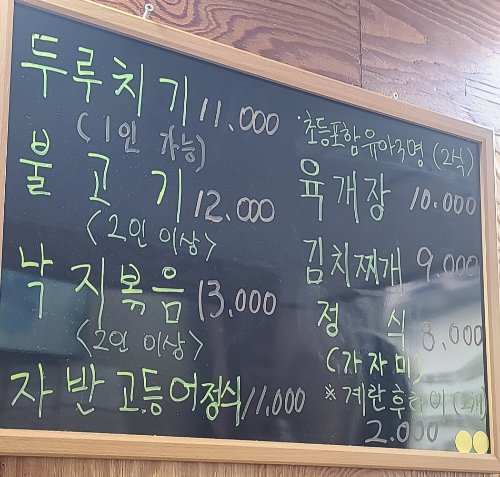 두루치기 11.000
(1인 가능)
불고기 12.000
<2인 이상>
낙지볶음 13,000
<2인 이상>
자반고등어정식 11.000
초등포함 유아 (2식)
육개장 10.000
김치찌개 9.000
정식 8,000
(가자미)
※계란후라이 (2개)
2.000